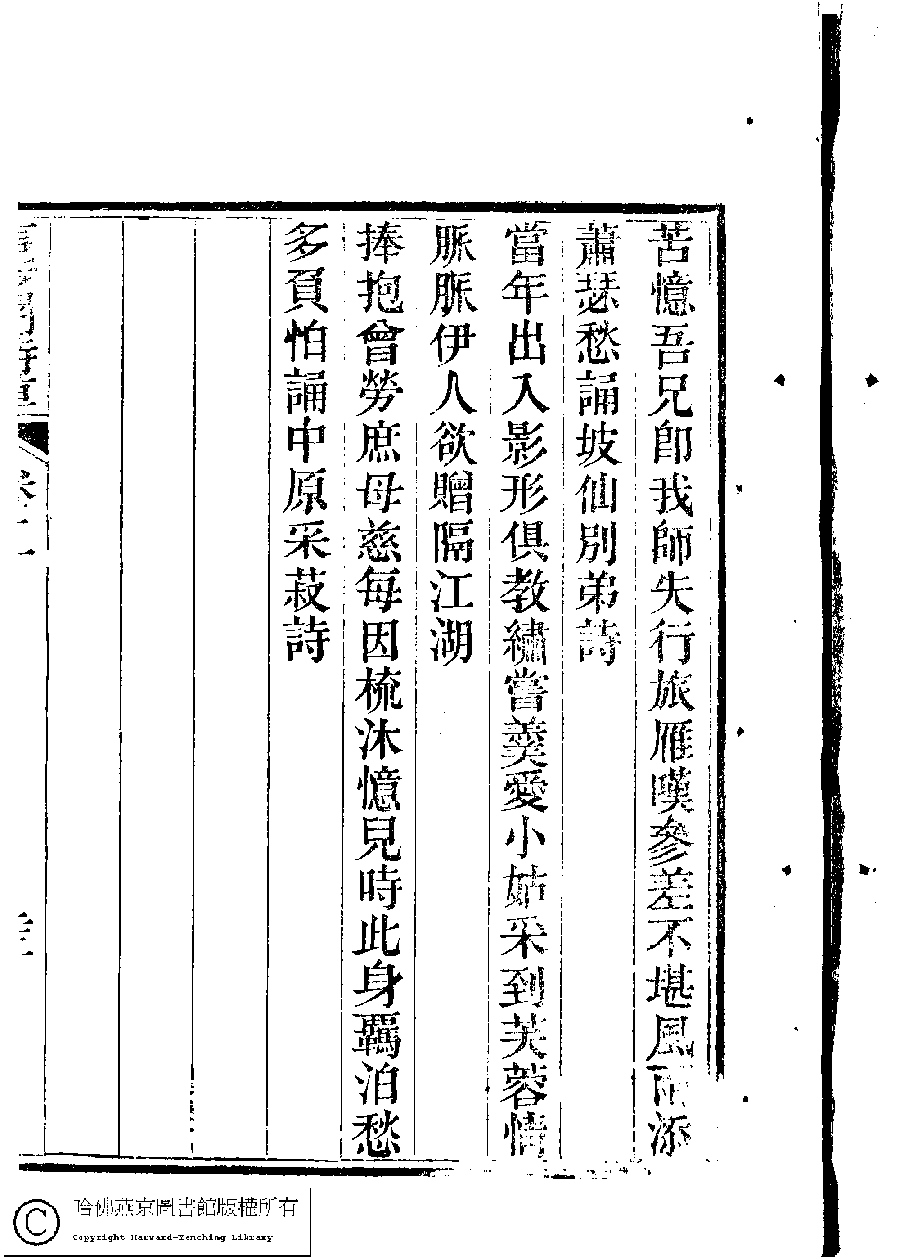 苦憶吾兄卽我師失行旅雁嘆參差不堪風雨添
蕭瑟愁誦坡仙別弟詩
當年出入影形俱教繡嘗羹愛小姑采到芙蓉情
脈脈伊人欲贈隔江湖
捧抱曾勞庶母慈每因梳沐憶兒時此身羈泊愁
多負怕誦中原采菽詩
哈佛燕京圖書館版權所有
Copyright Harvard-Yenching Library